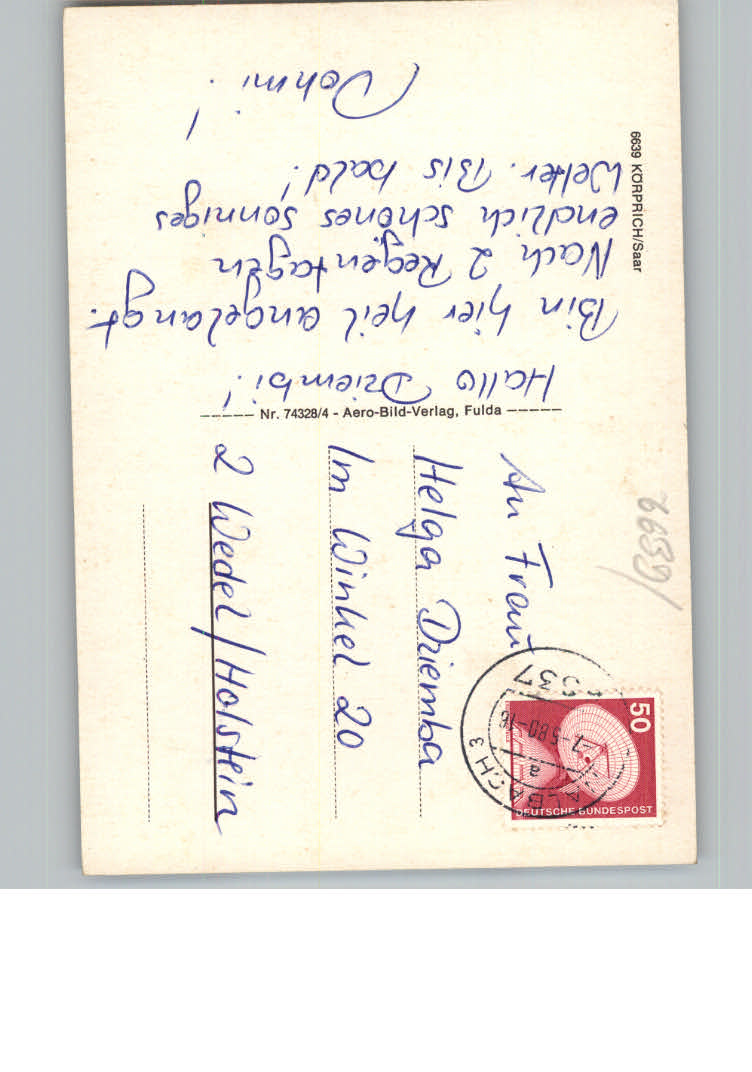 6639 KÖRPRICH/Saar
Hallo Dziembi!
Bin hier heil angelangt.
Nach 2 Regentagen
endlich schönes sonniges
Wetter. Bis bald!
!
Dohmi!
Nr. 74328/4 - Aero-Bild-Verlag, Fulda
An Frau
Helga Dziemba
Im Winkel 20
2 Wedel/Holstein
6639/
50
DEUTSCHE BUNDESPOST
-7.-5.80-18
a